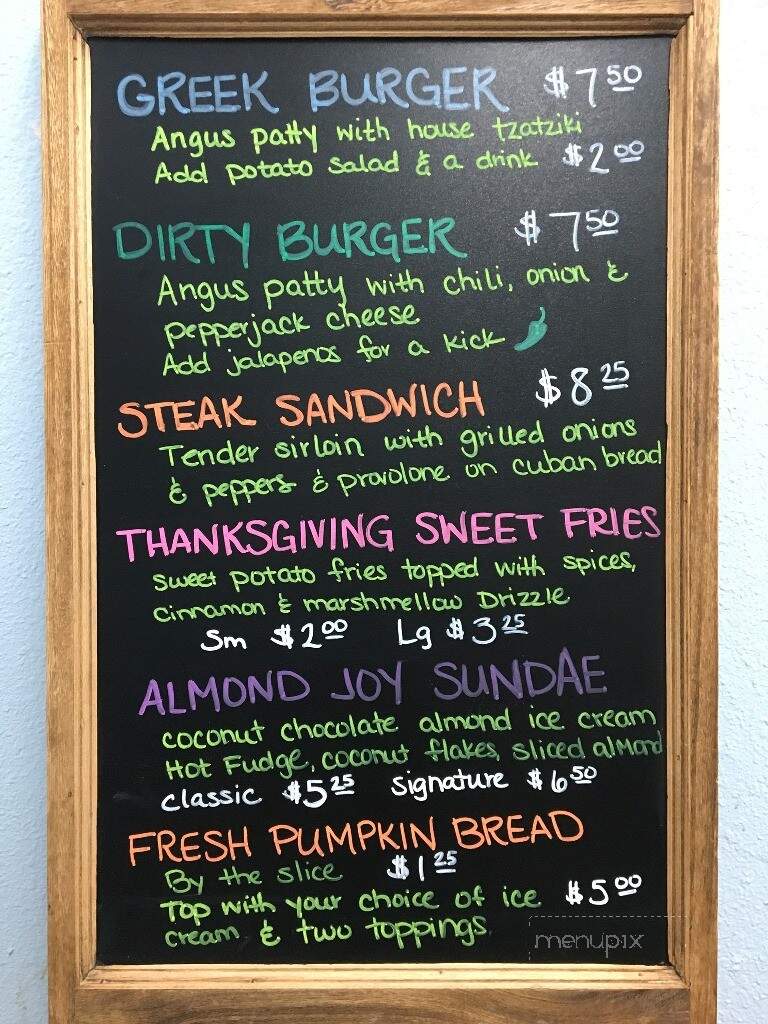 GREEK BURGER $7.50
Angus patty with house tzatziki
Add potato salad & a drink $2.00
DIRTY BURGER $7.50
Angus patty with chili, onion &
pepperjack cheese
Add jalapenos for a kick
STEAK SANDWICH $8.25
Tender sirloin with grilled onions
& peppers & provolone on cuban bread
THANKSGIVING SWEET FRIES
sweet potato fries topped with spices,
cinnamon & marshmellow Drizzle
Sm $2.00 Lg $3.25
ALMOND JOY SUNDAE
coconut chocolate almond ice cream
Hot Fudge, coconut flakes, sliced almond
classic $5.25 signature $6.50
FRESH PUMPKIN BREAD
By the slice $1.25
Top with your choice of ice $5.00
cream & two toppings.
menupix